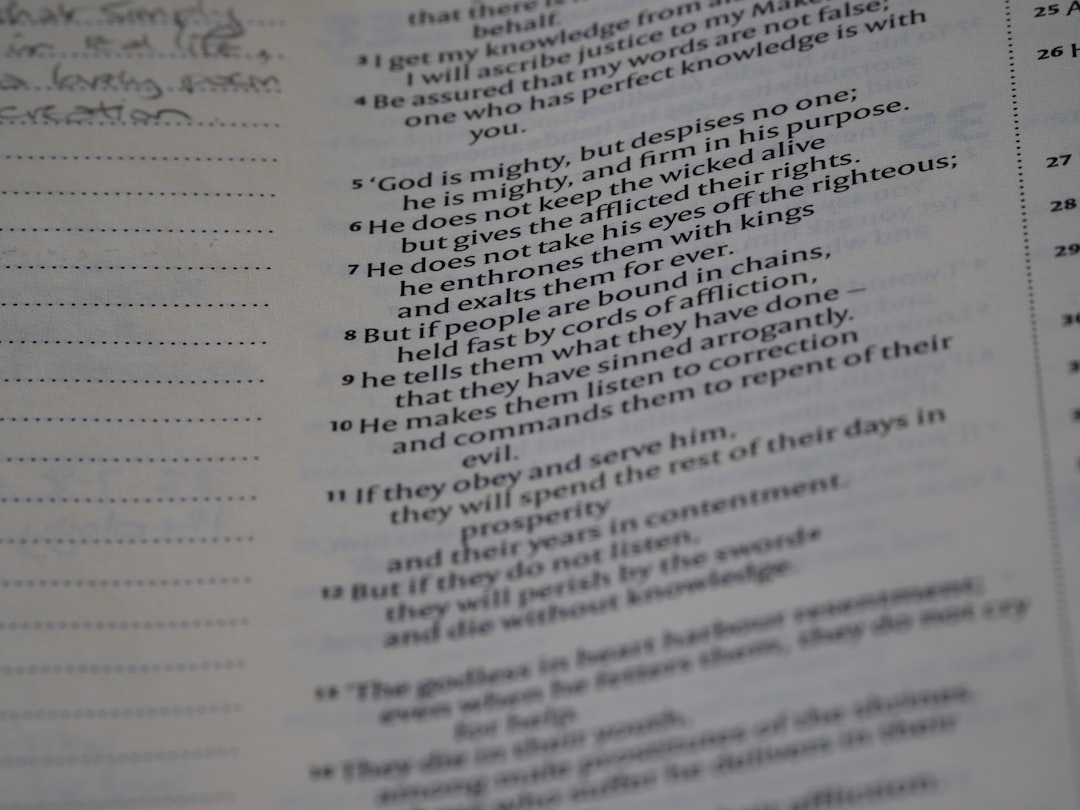 that simply
in
a lovely
creation
that there is
behalf.
3 I get my knowledge from
I will ascribe justice to my Maker
4 Be assured that my words are not false;
one who has perfect knowledge is with
you.
5 ‘God is mighty, but despises no one;
he is mighty, and firm in his purpose.
6 He does not keep the wicked alive
but gives the afflicted their rights.
7 He does not take his eyes off the righteous;
he enthrones them with kings
and exalts them for ever.
8 But if people are bound in chains,
held fast by cords of affliction,
9 he tells them what they have done –
that they have sinned arrogantly.
10 He makes them listen to correction
and commands them to repent of their
evil.
11 If they obey and serve him,
they will spend the rest of their days in
prosperity
and their years in contentment.
12 But if they do not listen,
they will perish by the sword
and die without knowledge.
13 ‘The godless in heart harbour resentment;
even when he fetters them, they do not cry
for help.
14 They die in their youth,
among male prostitutes of the shrines.
who suffer he delivers in their
affliction.
25 A
26 H
27
28
29
30